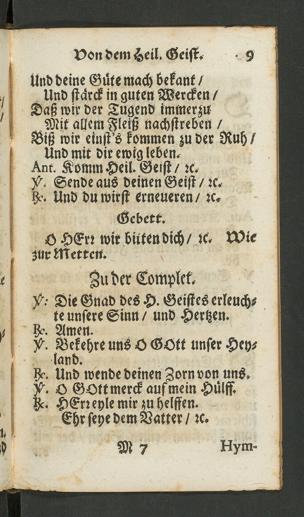 Von dem Heil. Geist. 9
Und deine Güte mach bekant /
Und stärck in guten Wercken /
Daß wir der Tugend immerzu
Mit allem Fleiß nachstreben /
Biß wir einst's kommen zu der Ruh /
Und mit dir ewig leben.
Ant. Komm Heil. Geist / ꝛc.
℣. Sende aus deinen Geist / ꝛc.
℟. Und du wirst erneueren / ꝛc.
Gebett.
O HErr wir bitten dich / ꝛc. Wie
zur Metten.
Zu der Complet.
℣: Die Gnad des H. Geistes erleuch-
te unsere Sinn / und Hertzen.
℟. Amen.
℣. Bekehre uns O GOtt unser Hey-
land.
℟. Und wende deinen Zorn von uns.
℣. O GOtt merck auf mein Hülff.
℟. HErr eyle mir zu helffen.
Ehr seye dem Vatter / ꝛc.
M 7 Hym-